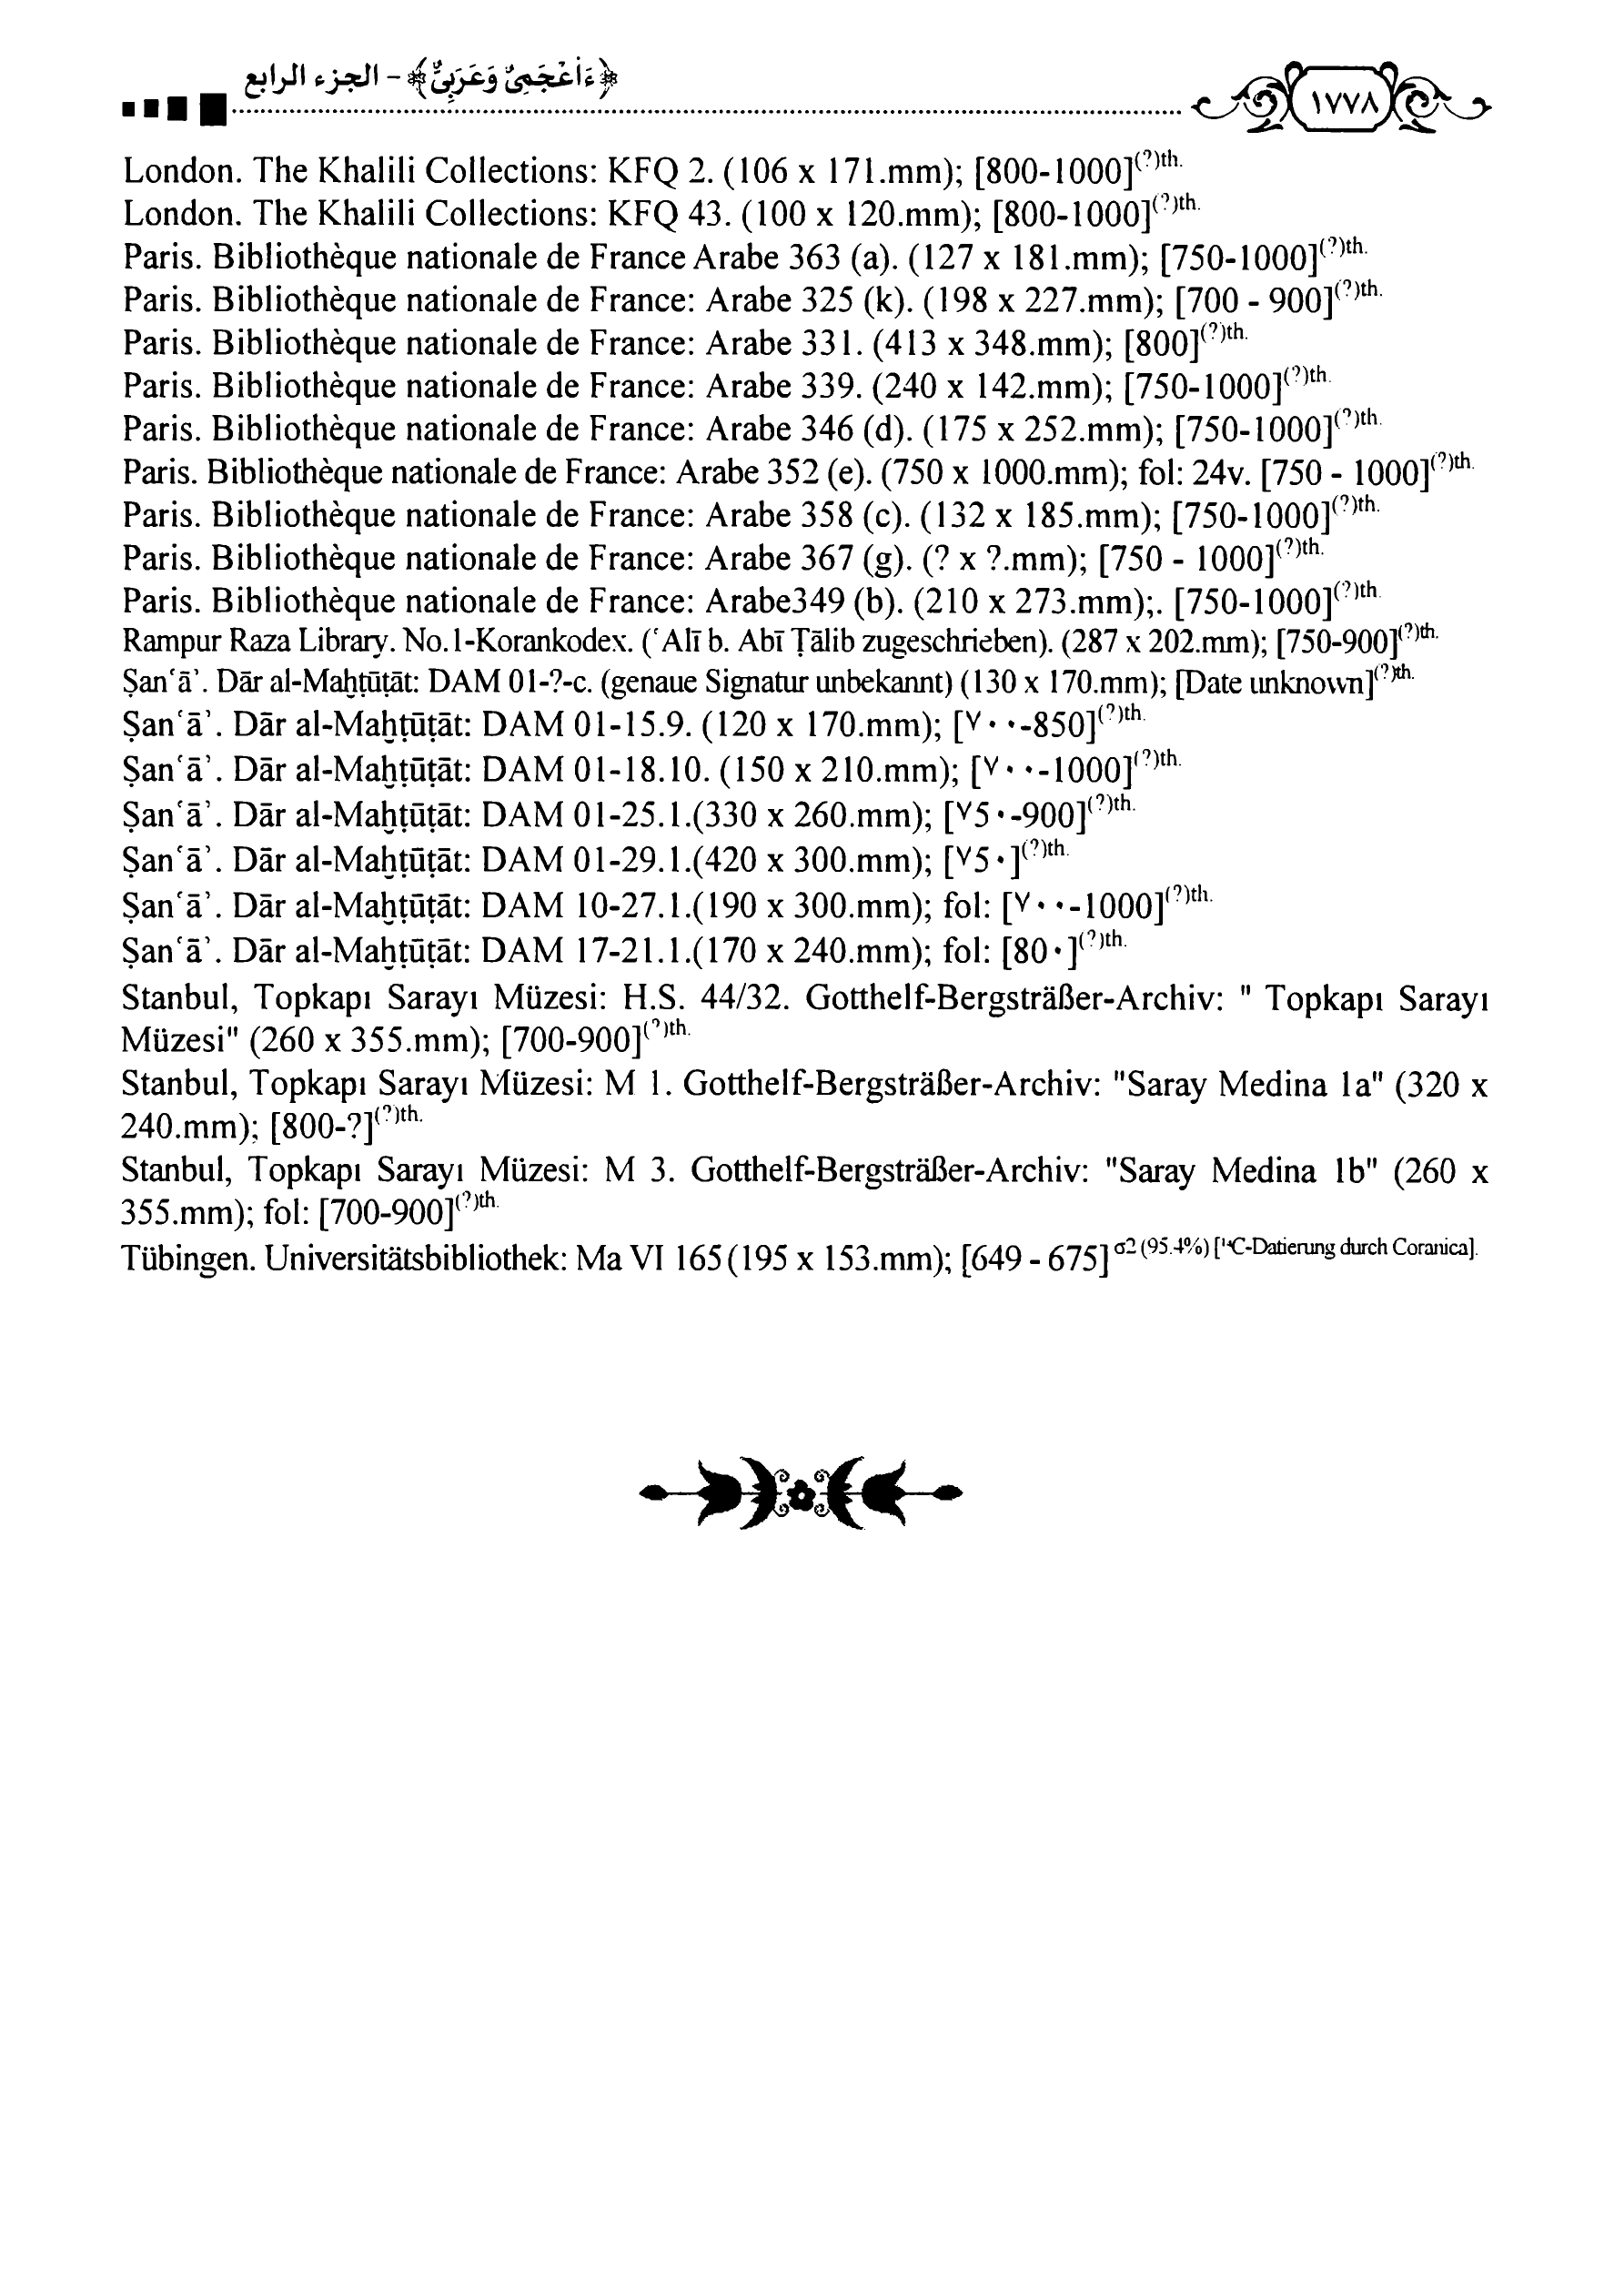 ﴿ءَأَعْجَمِىٌّ وَعَرَبِىٌّ﴾ - الجزء الرابع
١٧٧٨
London. The Khalili Collections: KFQ 2. (106 x 171.mm); [800-1000](?)th.
London. The Khalili Collections: KFQ 43. (100 x 120.mm); [800-1000](?)th.
Paris. Bibliothèque nationale de France Arabe 363 (a). (127 x 181.mm); [750-1000](?)th.
Paris. Bibliothèque nationale de France: Arabe 325 (k). (198 x 227.mm); [700 - 900](?)th.
Paris. Bibliothèque nationale de France: Arabe 331. (413 x 348.mm); [800](?)th.
Paris. Bibliothèque nationale de France: Arabe 339. (240 x 142.mm); [750-1000](?)th.
Paris. Bibliothèque nationale de France: Arabe 346 (d). (175 x 252.mm); [750-1000](?)th.
Paris. Bibliothèque nationale de France: Arabe 352 (e). (750 x 1000.mm); fol: 24v. [750 - 1000](?)th.
Paris. Bibliothèque nationale de France: Arabe 358 (c). (132 x 185.mm); [750-1000](?)th.
Paris. Bibliothèque nationale de France: Arabe 367 (g). (? x ?.mm); [750 - 1000](?)th.
Paris. Bibliothèque nationale de France: Arabe349 (b). (210 x 273.mm);. [750-1000](?)th.
Rampur Raza Library. No.1-Korankodex. (ʿAlī b. Abī Ṭālib zugeschrieben). (287 x 202.mm); [750-900](?)th.
Ṣanʿāʾ. Dār al-Maḫṭūṭāt: DAM 01-?-c. (genaue Signatur unbekannt) (130 x 170.mm); [Date unknown](?)th.
Ṣanʿāʾ. Dār al-Maḫṭūṭāt: DAM 01-15.9. (120 x 170.mm); [٧٠٠-850](?)th.
Ṣanʿāʾ. Dār al-Maḫṭūṭāt: DAM 01-18.10. (150 x 210.mm); [٧٠٠-1000](?)th.
Ṣanʿāʾ. Dār al-Maḫṭūṭāt: DAM 01-25.1.(330 x 260.mm); [٧5٠-900](?)th.
Ṣanʿāʾ. Dār al-Maḫṭūṭāt: DAM 01-29.1.(420 x 300.mm); [٧5٠](?)th.
Ṣanʿāʾ. Dār al-Maḫṭūṭāt: DAM 10-27.1.(190 x 300.mm); fol: [٧٠٠-1000](?)th.
Ṣanʿāʾ. Dār al-Maḫṭūṭāt: DAM 17-21.1.(170 x 240.mm); fol: [80٠](?)th.
Stanbul, Topkapı Sarayı Müzesi: H.S. 44/32. Gotthelf-Bergsträßer-Archiv: " Topkapı Sarayı
Müzesi" (260 x 355.mm); [700-900](?)th.
Stanbul, Topkapı Sarayı Müzesi: M 1. Gotthelf-Bergsträßer-Archiv: "Saray Medina 1a" (320 x
240.mm); [800-?](?)th.
Stanbul, Topkapı Sarayı Müzesi: M 3. Gotthelf-Bergsträßer-Archiv: "Saray Medina 1b" (260 x
355.mm); fol: [700-900](?)th.
Tübingen. Universitätsbibliothek: Ma VI 165 (195 x 153.mm); [649 - 675] σ2 (95.4%) [¹⁴C-Datierung durch Coranica].